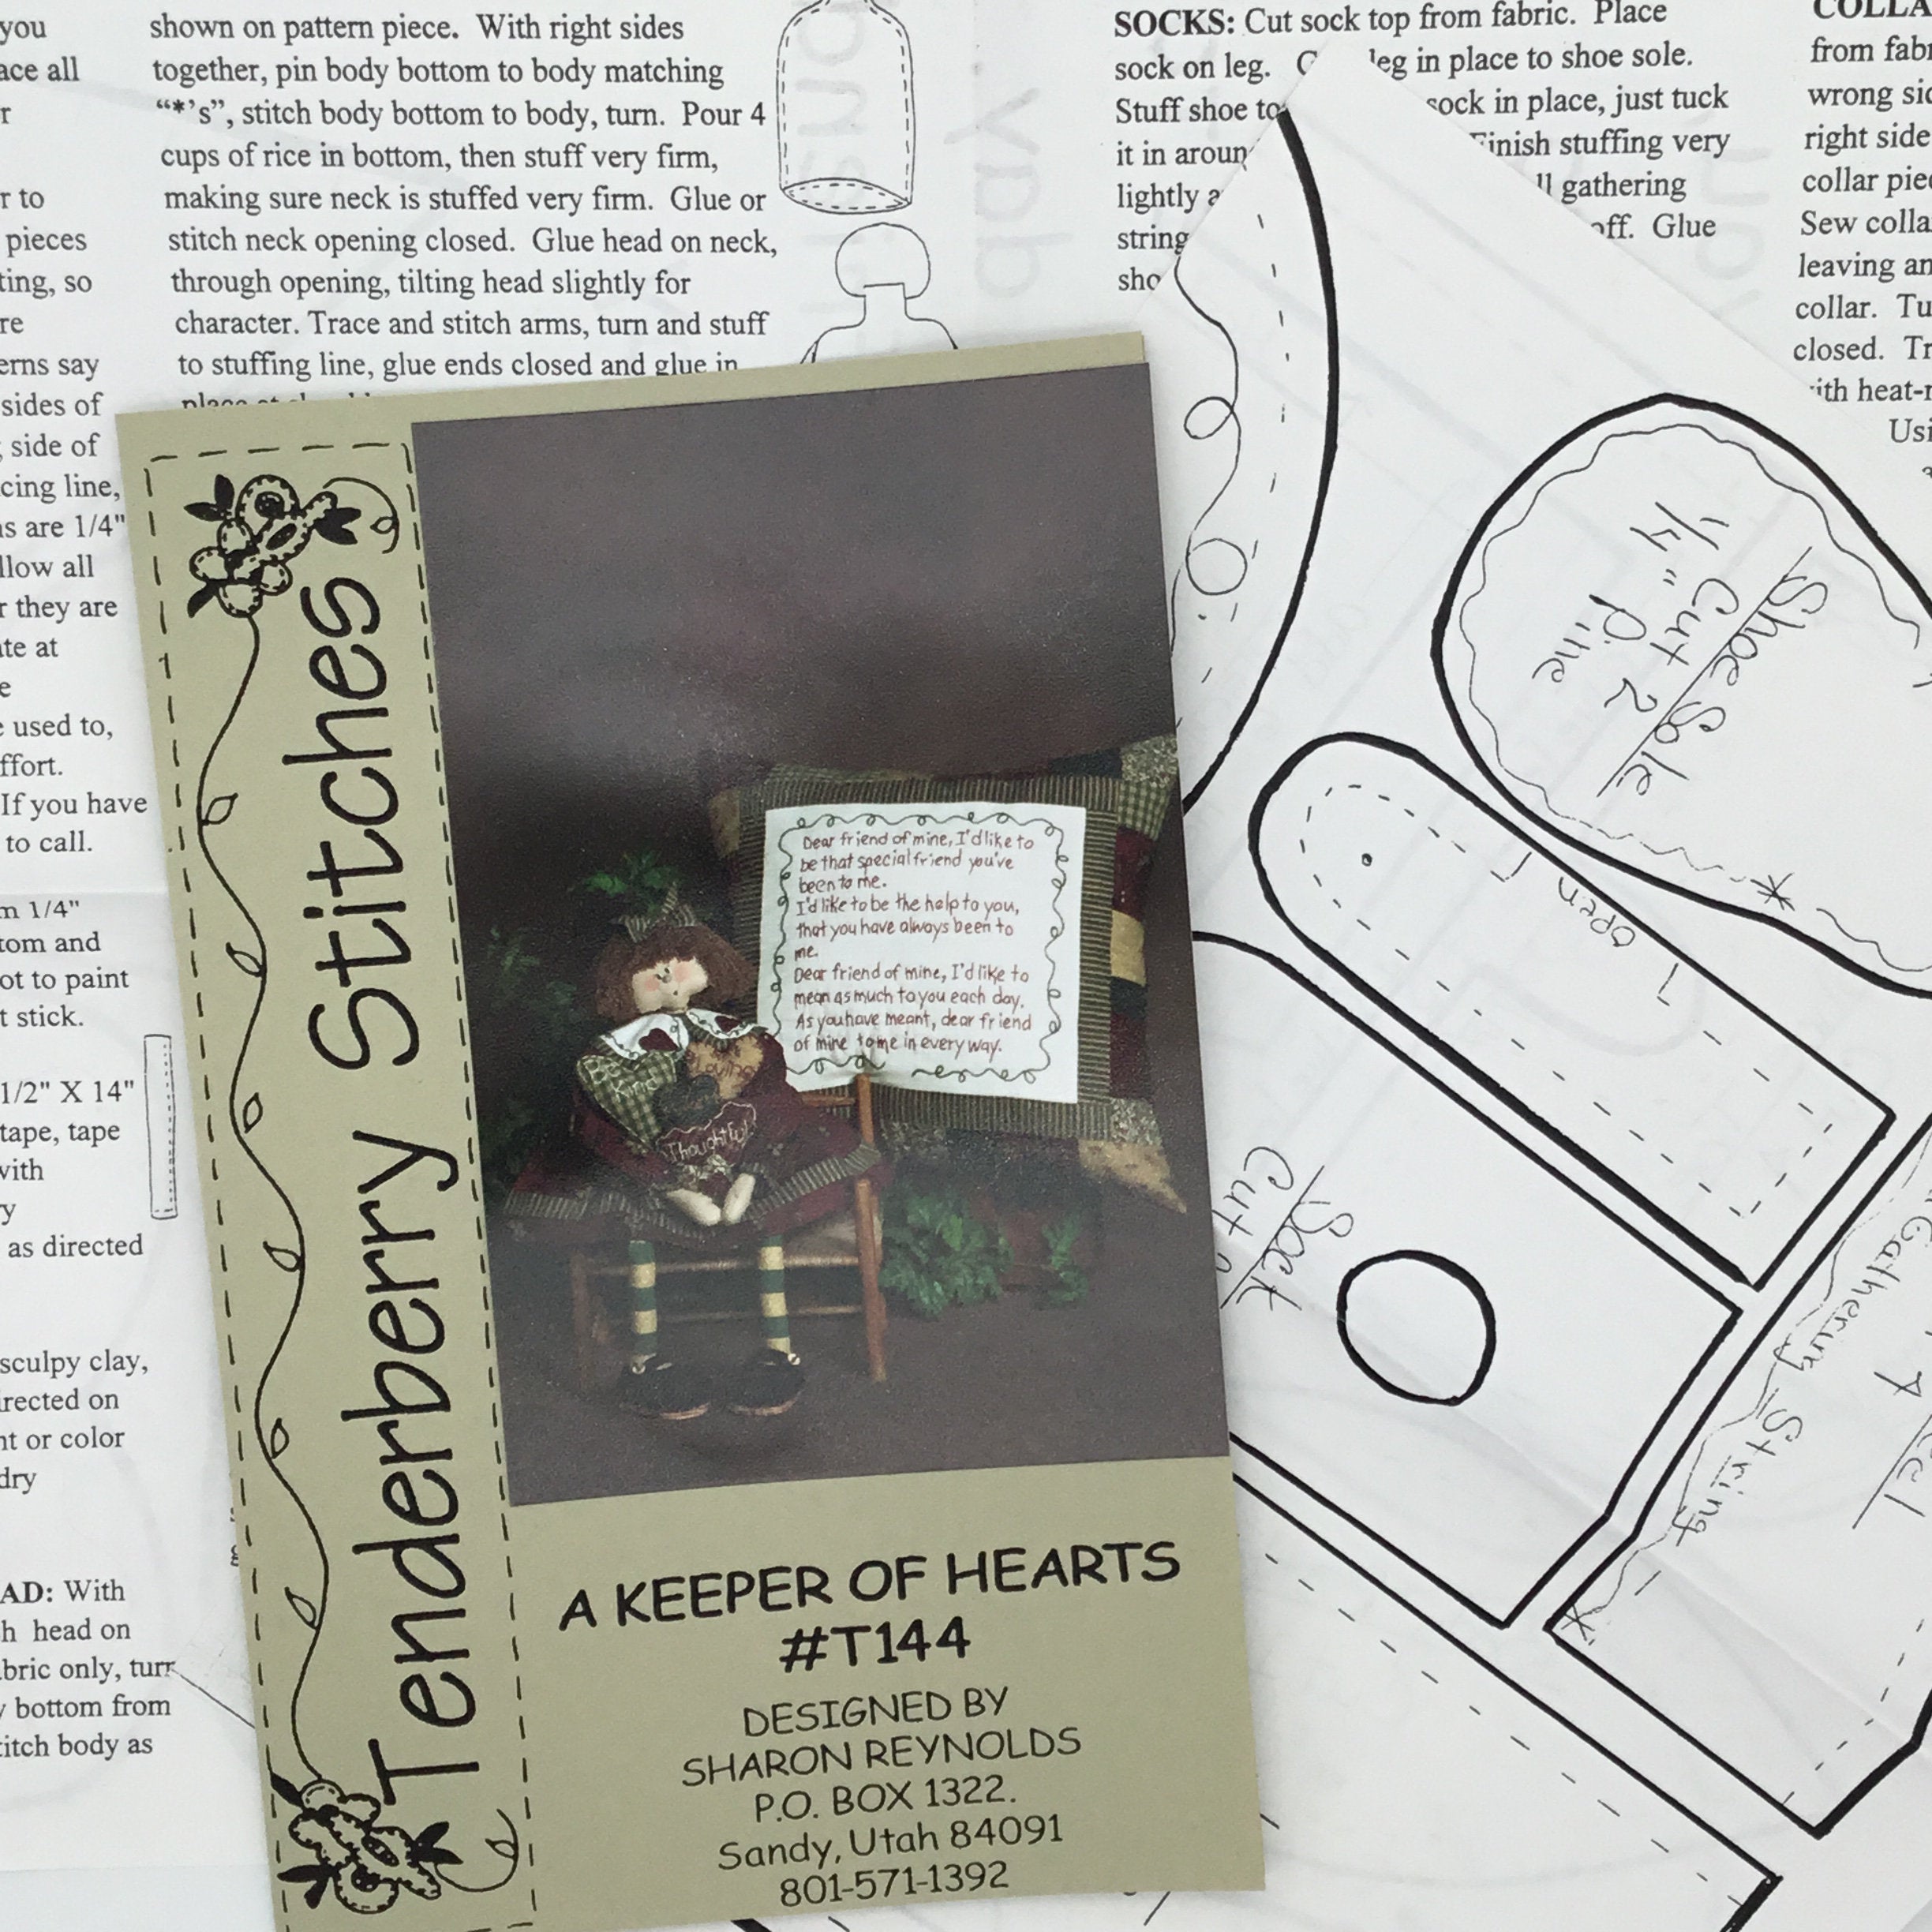 you
ace all
r
r to
pieces
ting, so
re
erns say
sides of
side of
cing line,
s are 1/4"
llow all
r they are
te at
e
used to,
ffort.
If you have
to call.
m 1/4"
tom and
ot to paint
t stick.
1/2" X 14"
tape, tape
with
ry
as directed
sculpy clay,
irected on
nt or color
dry
AD: With
h head on
bric only, turr
y bottom from
titch body as
shown on pattern piece. With right sides
together, pin body bottom to body matching
“*’s”, stitch body bottom to body, turn. Pour 4
cups of rice in bottom, then stuff very firm,
making sure neck is stuffed very firm. Glue or
stitch neck opening closed. Glue head on neck,
through opening, tilting head slightly for
character. Trace and stitch arms, turn and stuff
to stuffing line, glue ends closed and glue in
SOCKS: Cut sock top from fabric. Place
sock on leg. leg in place to shoe sole.
Stuff shoe to sock in place, just tuck
it in aroun Finish stuffing very
lightly a ll gathering
string off. Glue
sho
COLLA
from fabr
wrong sid
right side
collar piec
Sew colla
leaving an
collar. Tu
closed. Tr
ith heat-r
Usi
Tenderberry Stitches
Dear friend of mine, I'd like to
be that special friend you've
been to me.
I'd like to be the help to you,
that you have always been to
me.
Dear friend of mine, I'd like to
mean as much to you each day.
As you have meant, dear friend
of mine to me in every way.
Be
Kind
Loving
Thoughtful
A KEEPER OF HEARTS
#T144
DESIGNED BY
SHARON REYNOLDS
P.O. BOX 1322.
Sandy, Utah 84091
801-571-1392
Shoe Sole
Cut 2
1/4" Pine
open
Sock
Cut
Gathering String